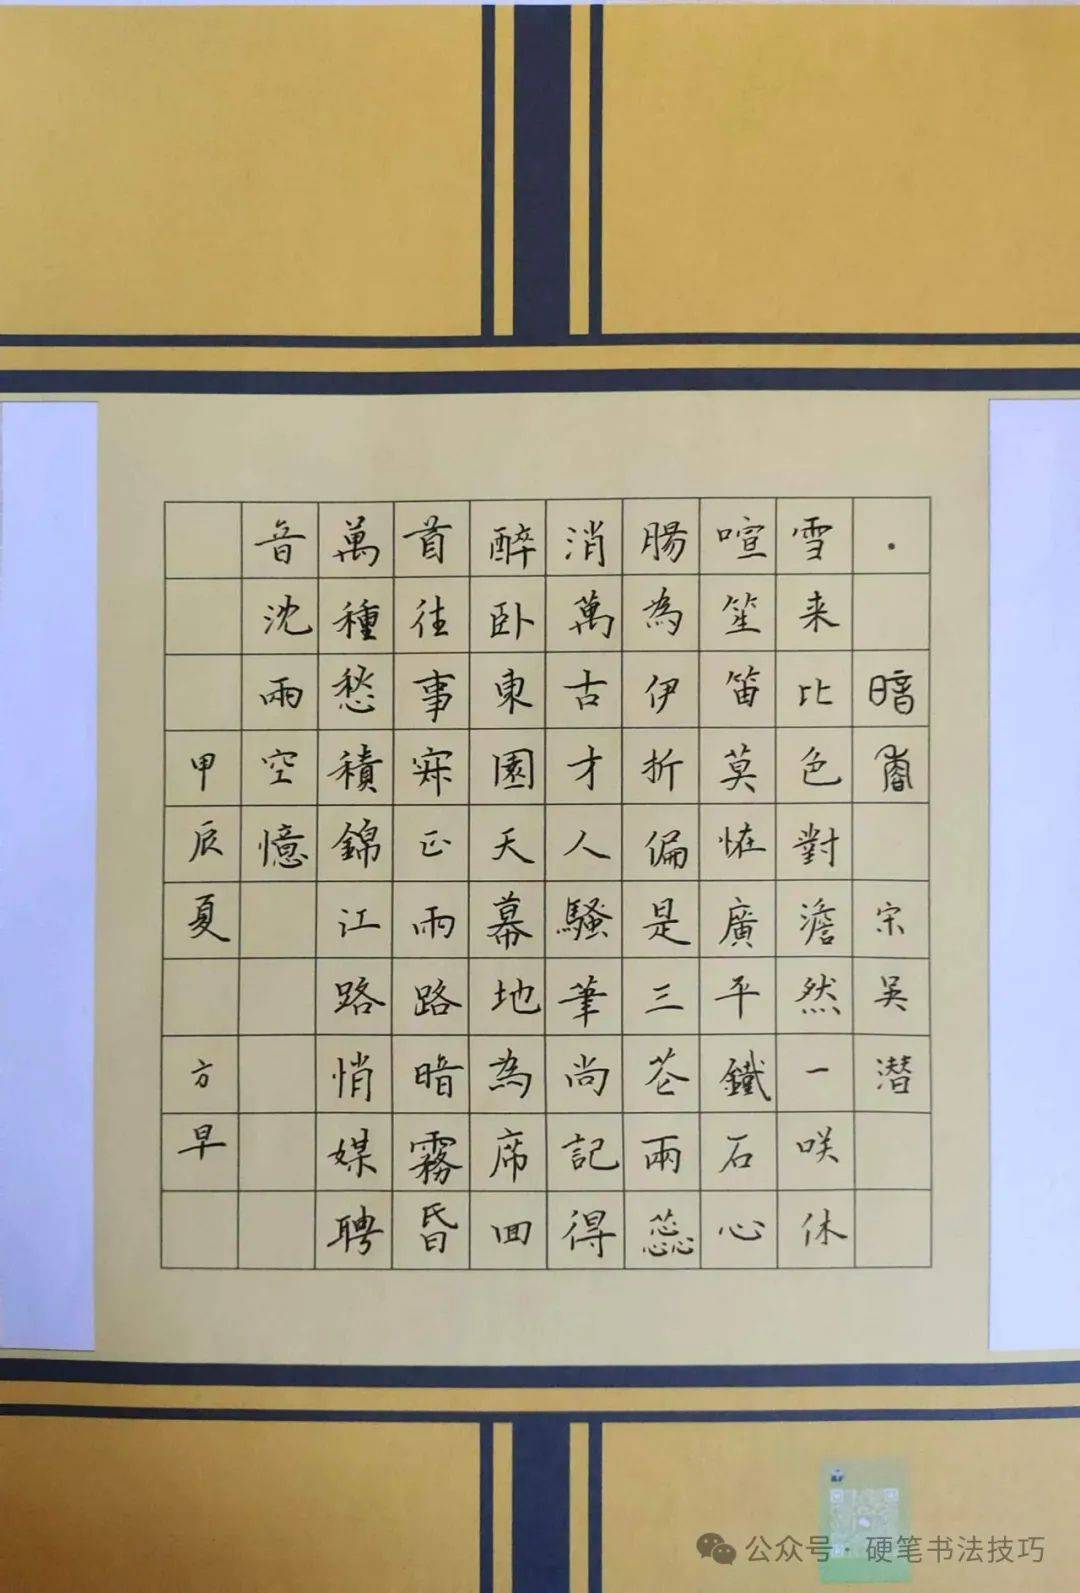 · 暗香 宋吳潜
雪来比色對澹然一咲休
喧笙笛莫恠廣平鐵石心
腸為伊折偏是三花兩蕊
消萬古才人騷筆尚記得
醉卧東園天幕地為席回
首往事寂正雨路暗霧昏
萬種愁積錦江路悄媒聘
音沈兩空憶
甲辰夏 方早
公众号·硬笔书法技巧